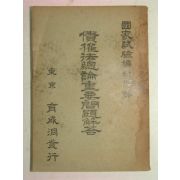 國家試驗準備
債權法總論重要問題解答
東京 育成洞發行